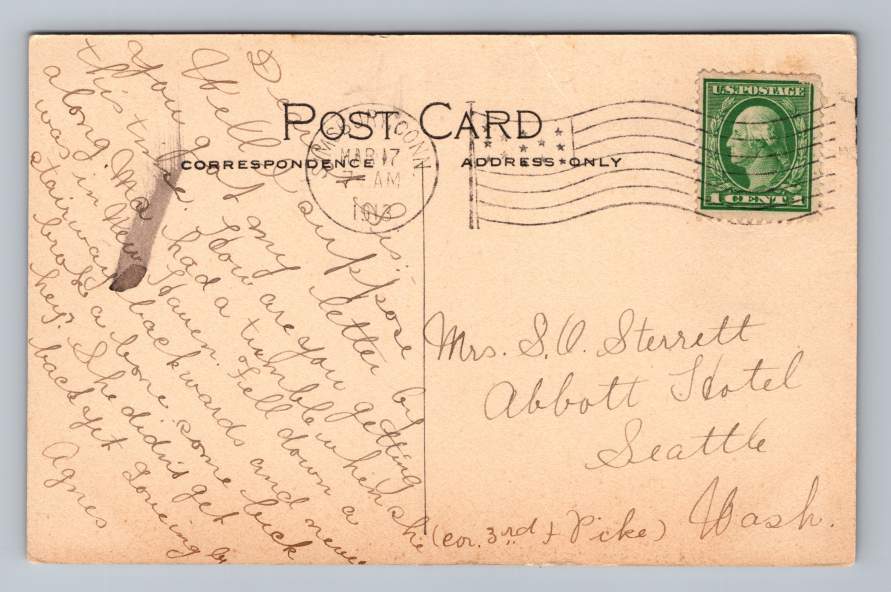 POST CARD
CORRESPONDENCE
ADDRESS ONLY
CONN
MAR 17
7 AM
1913
U.S. POSTAGE
1 CENT 1
Dear
Well I suppose
you got my letter by
this time. How are you getting
along. Ma had a tumble when she
was in New Haven. Fell down a
stairway backwards and never
broke a bone, some luck
hey? She didn't get
back yet
Agnes
Mrs. S. O. Sterrett
Abbott Hotel
Seattle
Wash.
(cor. 3rd + Pike)